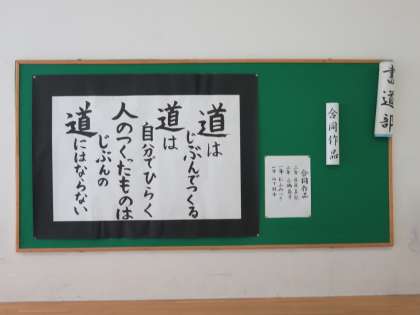 書道部
合同作品
道は
じぶんでつくる
道は
自分でひらく
人のつくったものは
じぶんの
道にはならない
合同作品